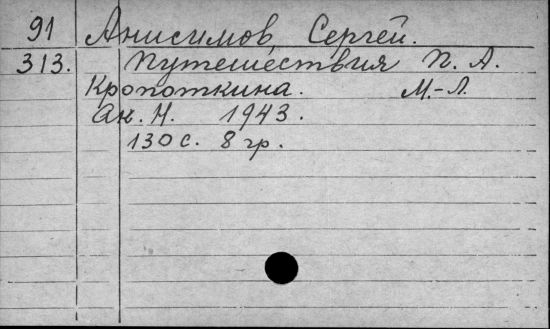 91 Анисимов Сергей.
313. Путешествия П. А.
Кропоткина. М.-Л.
Ак. Н. 1943.
130 с. 8 гр.